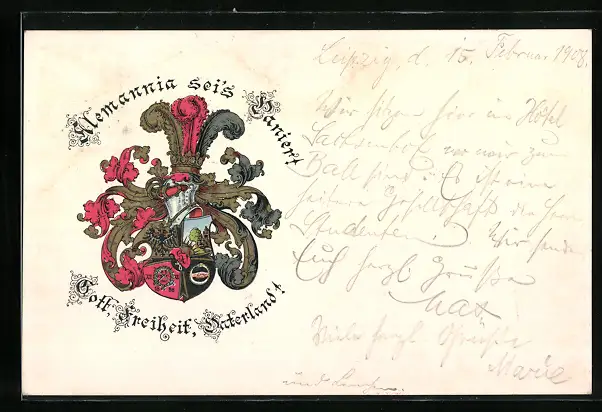 Alemannia sei's Panier!
Gott, Freiheit, Vaterland!
Leipzig, d. 15. Februar 1908.
Wir sitzen hier im Hôtel
Sachsenhof wo wir zum
Ball sind. Es ist eine
heitere Gesellschaft die Herren
Studenten. Wir senden
Euch herzl. Grüße
Max
Viele herzl. Grüße
Marie
und